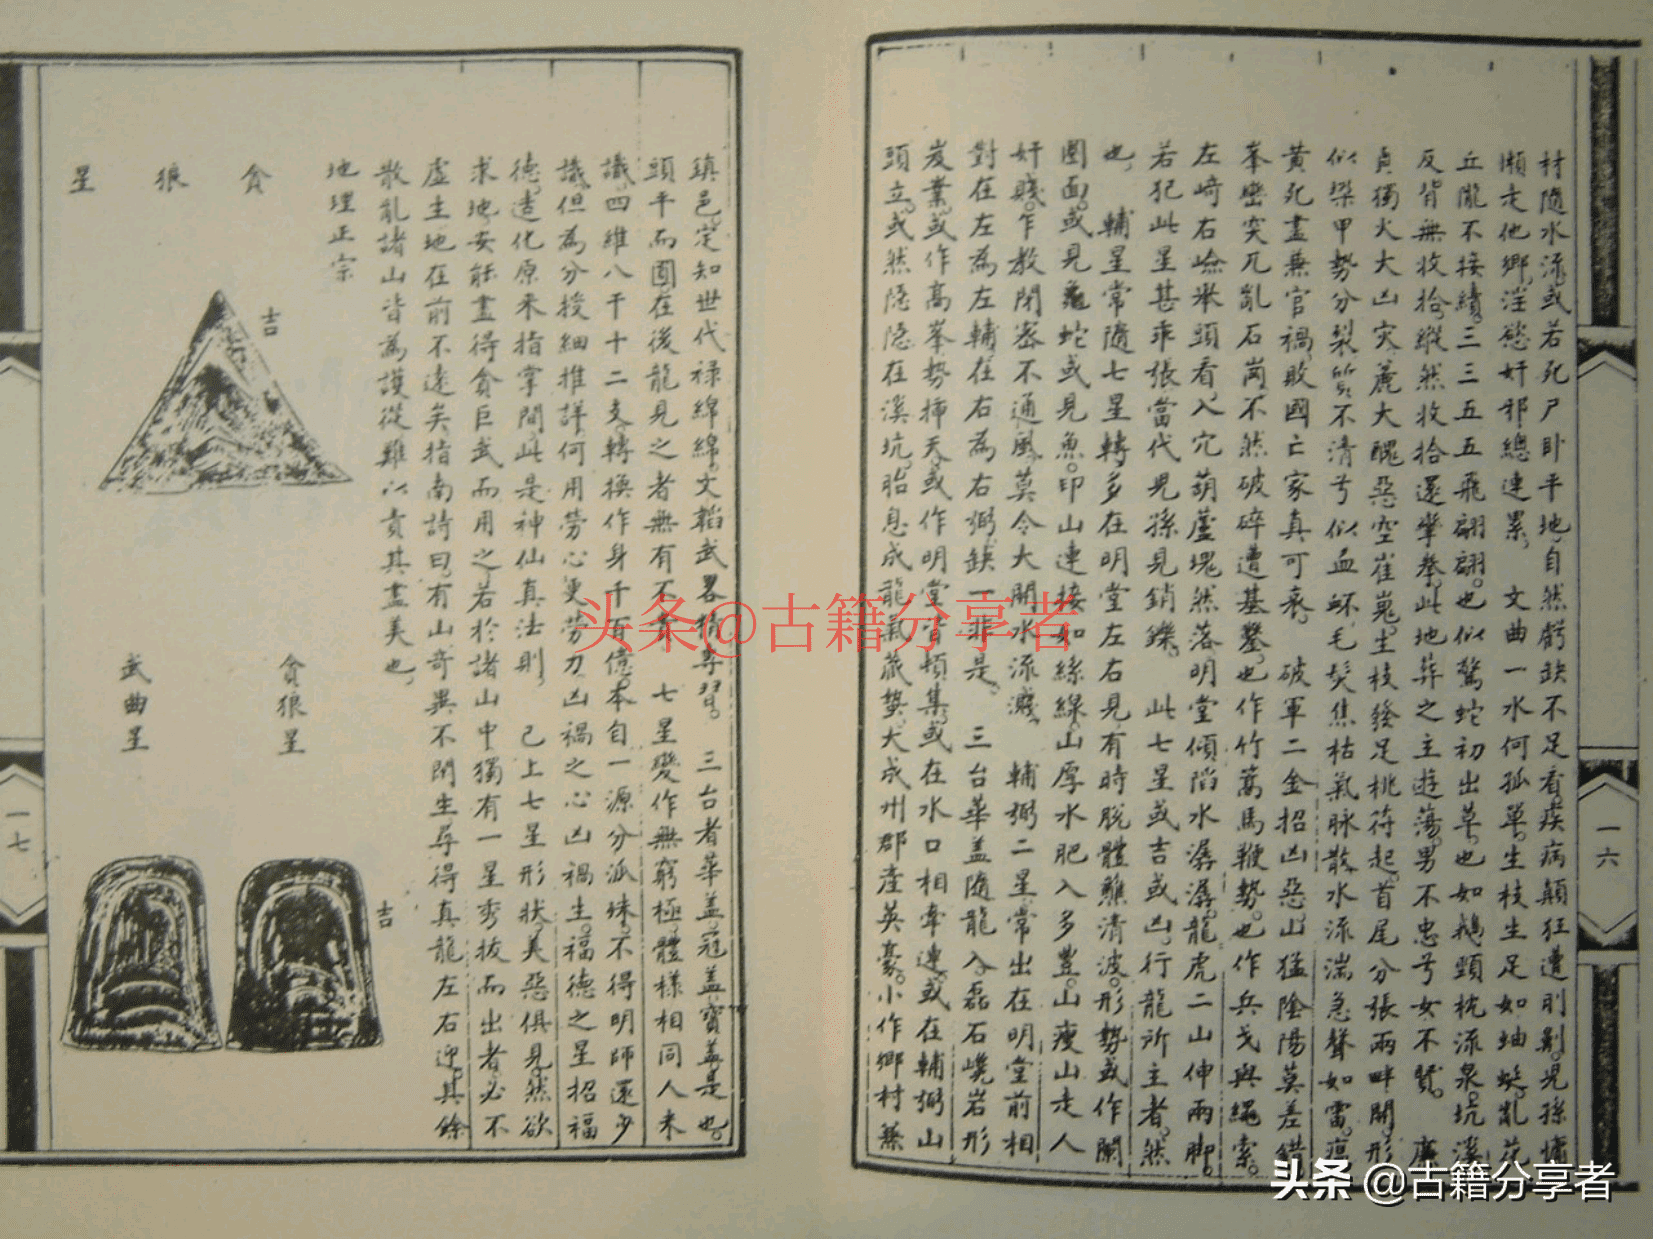 材隨水流或若死尸卧平地自然虧缺不足看疾病顛狂遭刖劓兒孫慵
懶走他鄉淫慾奸邪總連累 文曲一水何孤單生枝生足如蚰蜒亂花
丘隴不接續三三五五飛翩翩也似驚蛇初出草也如鵝頸枕流泉坑溪
反背無收拾縱然收拾還攣拳此地葬之主遊蕩男不忠兮女不賢 廉
貞獨火大山突麄大醜惡空崔嵬生枝發足桃符起首尾分張兩畔開形
似梁甲勢分裂質不清兮似血衃毛髮焦枯氣脉散水流湍急聲如雷瘟
黃死盡兼官禍敗國亡家真可哀 破軍二金招凶惡山猛陰陽莫差錯
峯巒突兀亂石岗不然破碎遭基鑿也作竹篙馬鞭勢也作兵戈與繩索
左崎右嶮举頭看入穴葫蘆塊然落明堂傾陷水潺潺龍虎二山伸兩脚
若犯此星甚乖張當代兒孫見銷鑠 此七星或吉或凶行龍所主者然
也 輔星常隨七星轉多在明堂左右見有時脫體蘸清波形勢或作闌
圈面或見龜蛇或見魚印山連接如絲線山厚水肥入多豐山瘦山走人
奸賤乍教閉密不通風莫令大開水流濺 輔弼二星常出在明堂前相
對在左為左輔在右為右弼缺一非是 三台華盖隨龍入磊石巉岩形
岌業或作高峯勢揷天或作明堂皆頓集或在水口相牽連或在輔弼山
頭立或然隱隱在溪坑胎息成龍氣藏蟄大成州郡産英豪小作鄉村兼
一六
鎮邑定知世代禄綿綿文韜武畧精專習 三台者華盖冠盖寶盖是也
頭平而圓在後龍見之者無有不貴 七星變作無窮極體樣相同人未
識四維八干十二支轉換作身千百億本自一源分派殊不得明師還少
識但為分授細推詳何用勞心更勞力凶禍之心凶禍生福德之星招福
德造化原来指掌間此是神仙真法則 已上七星形狀美惡俱見然欲
求地安能盡得貪巨武而用之若於諸山中獨有一星秀拔而出者必不
虛生地在前不遠矣指南詩曰有山奇異不閒生尋得真龍左右迎其餘
散亂諸山皆為護從難以責其盡美也
地理正宗
貪狼星
吉
貪狼星
武曲星
吉
一七
头条@古籍分享者
头条 @古籍分享者